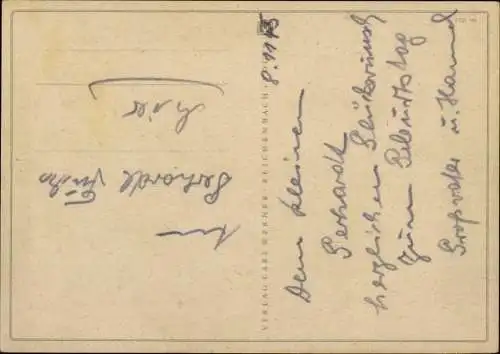 8.11.43
Dem kleinen
Gerhardt
herzlichen Glückwunsch
zum Geburtstag
Großvater u. Hanna
VERLAG CARL WERNER · REICHENBACH
Gerhardt Fuchs
hier